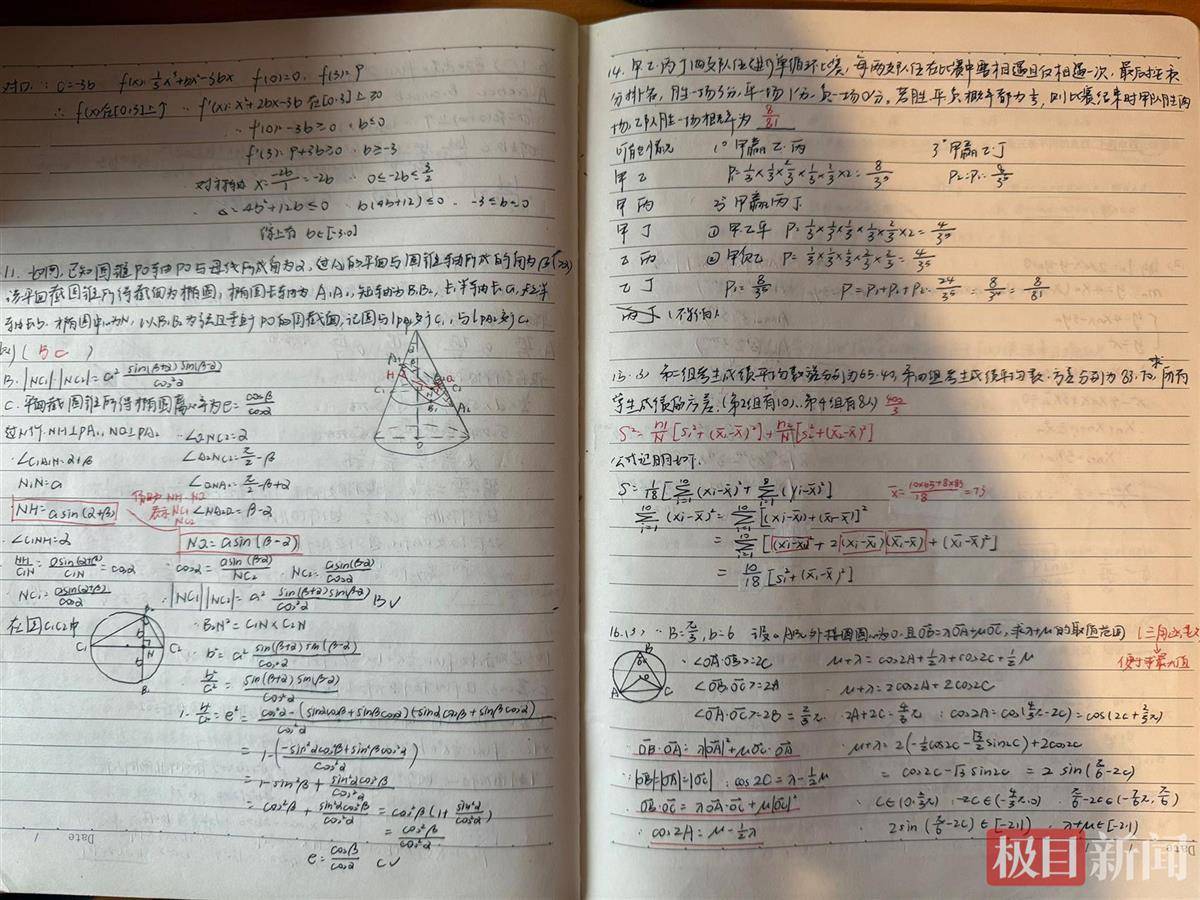 对⑦: ∵ c=-3b f(x)=⅓x³+bx²-3bx f(0)=0, f(3)=9
∴ f(x)在[0,3]上↑ ∴ f'(x)=x²+2bx-3b在[0,3]上≥0
∴ f'(0)=-3b≥0 ∴ b≤0
f'(3)=9+3b≥0 ∴ b≥-3
∴ Δ=4b²+12b≤0 ∴ b(4b+12)≤0 ∴ -3≤b≤0
综上有 b∈[-3,0]
11. 如图, 已知圆锥PO轴PO与母线所成角为α, 过A₁的平面与圆锥轴所成的角为β
该平面截圆锥所得截面为椭圆, 椭圆长轴为A₁A₂, 短轴为B₁B₂, 长半轴长a, 短半
轴长b. 椭圆中心为N, 以B₁B₂为弦且垂直PO的圆截面, 记圆与PA₁交C₁, 与PA₂交C₂
( BC )
B. |NC₁||NC₂|=a² sin(β+α)sin(β-α)/cos²α
C. 平面截圆锥所得椭圆离心率为e=cosβ/cosα
过N作NH⊥PA₁, NQ⊥PA₂ ∴∠QNC₂=α
∴∠C₁A₁H=α+β ∠A₂NC₂=π/2-β
NA₁=a ∠QNA₂=π/2-β+α
NH=asin(α+β) 借助NH·NQ 表示NC₁ NC₂ ∠NA₂Q=β-α
∴∠C₁NH=α NQ=asin(β-α)
∴NH/C₁N=asin(α+β)/C₁N=cosα ∴cosα=asin(β-α)/NC₂ NC₂=asin(β-α)/cosα
∴NC₁=asin(α+β)/cosα ∴|NC₁||NC₂|=a² sin(β+α)sin(β-α)/cos²α B✓
在圆C₁C₂中 ∴B₂N²=C₁N×C₂N
∴b²=a² sin(β+α)sin(β-α)/cos²α
∴b²/a²=sin(β+α)sin(β-α)/cos²α
1-b²/a²=e²=cos²α-(sinαcosβ+sinβcosα)(-sinαcosβ+sinβcosα)/cos²α
=1-(-sin²αcos²β+sin²βcos²α/cos²α)
=1-sin²β+sin²αcos²β/cos²α
=cos²β+sin²αcos²β/cos²α=cos²β(1+sin²α/cos²α)
=cos²β/cos²α
e=cosβ/cosα C✓
Date
14. 甲乙丙丁四支队伍进行单循环比赛, 每两支队伍在比赛中要相遇且仅相遇一次, 最后按积
分排名, 胜一场3分, 平一场1分, 负一场0分, 若胜平负概率都为⅓, 则比赛结束时甲队胜两
场, 乙队胜一场概率为 8/81
可能情况 1°甲赢乙、丙 3°甲赢乙、丁
甲乙 P₁=⅓×⅓×⅔×⅓×⅔×2=8/3⁵ P₂=P₁=8/3⁵
甲丙 2°甲赢丙丁
甲丁 ①甲乙平 P=⅓×⅓×⅓×⅓×⅔×2=4/3⁵
乙丙 ②甲负乙 P=⅓×⅓×⅓×⅔×⅔=4/3⁵
乙丁 P₃=8/3⁵ P=P₁+P₂+P₃=24/3⁵=8/3⁴=8/81
丙丁 (不影响)
15. (3) 第二组考生成绩平均数、方差分别为65、40, 第四组考生成绩平均数、方差分别为83、70, 求所有
学生成绩的方差. (第2组有10人、第4组有8人) 400/3
S²=n₁/N[S₁²+(x̄₁-x̄)²]+n₂/N[S₂²+(x̄₂-x̄)²]
公式证明如下:
S²=1/18[Σ(xᵢ-x̄)²+Σ(yᵢ-x̄)²] x̄=10×65+8×83/18=73
Σ(xᵢ-x̄)²=Σ[(xᵢ-x̄₁)+(x̄₁-x̄)]²
=Σ[(xᵢ-x̄₁)²+2(xᵢ-x̄₁)(x̄₁-x̄)+(x̄₁-x̄)²]
=10/18[S₁²+(x̄₁-x̄)²]
16. (3) ∵B=π/3, b=6 设△ABC外接圆圆心为O, 且OB=λOA+μOC, 求λ+μ的取值范围
∴<OA·OB>=2C μ+λ=cos2A+½λ+cos2C+½μ
<OB·OC>=2A μ+λ=2cos2A+2cos2C
<OA·OC>=2B=⅔π ∴2A+2C=4/3π ∴cos2A=cos(4/3π-2C)=cos(2C+⅔π)
∴OB·OA=λ|OA|²+μOC·OA ∴μ+λ=2(-½cos2C-√3/2sin2C)+2cos2C
∵|OB|=|OA|=|OC| ∴cos2C=λ-½μ =cos2C-√3sin2C=2sin(π/6-2C)
OB·OC=λOA·OC+μ|OC|² ∵C∈(0,⅔π) ∴-2C∈(-4/3π,0) ∴π/6-2C∈(-7/6π,π/6)
∴cos2A=μ-½λ 2sin(π/6-2C)∈[-2,1) ∴λ+μ∈[-2,1)
Date
极目新闻